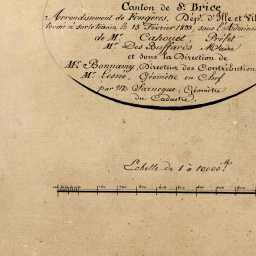 Canton de St. Brice
Arrondissement de Fougères, Dépt. d'Ille et Vil
levée sur le terrain le 15 Février 1833 sous l'Administ
de Mr. Cahouet, Préfet
Mr. Des Buffards Maire
et sous la Direction de
Mr. Bonnamy, Directeur des Contribution
Mr. Lesné, Géomètre en Chef
par Mr. Géomètre
du Cadastre.
Echelle de 1 à 10000